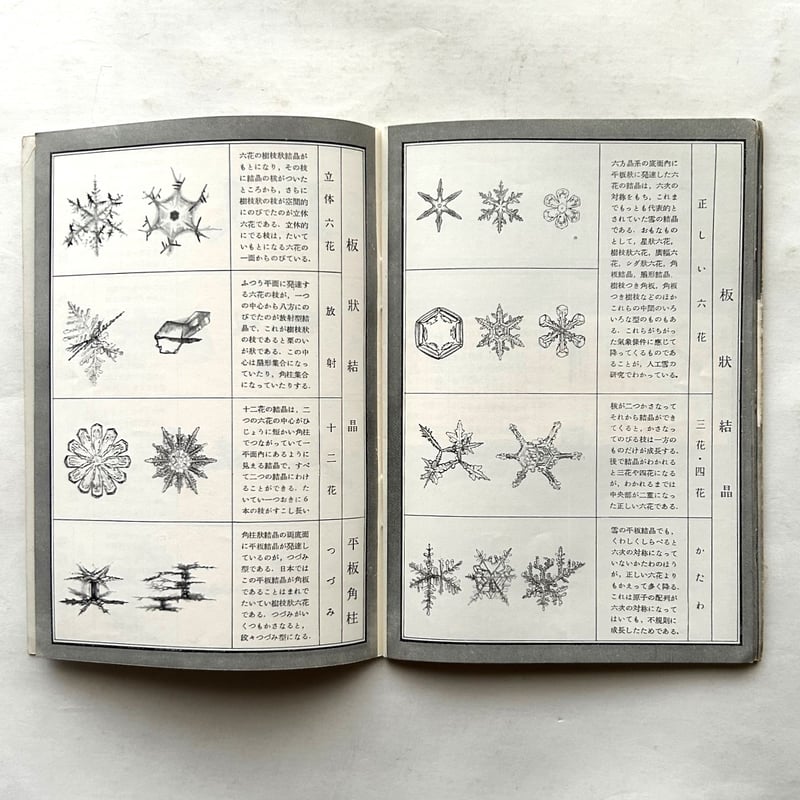 板狀結晶
正しい六花
六方晶系の底面內に
平板狀に発達した六
花の結晶は，六次の
対称をもち，これま
でもっとも代表的と
されていた雪の結晶
である．おもなもの
として，星狀六花，
樹枝狀六花，廣幅六
花，シダ狀六花，角
板結晶，扇形結晶，
樹枝つき角板，角板
つき樹枝などのほか
これらの中間のいろ
いろな型のものもあ
る．これらがちがっ
た氣象條件に應じて
降ってくるものであ
ることが，人工雪の
研究でわかっている．
三花・四花
核が二つかさなって
それから結晶ができ
てくると，かさなっ
てのびる枝は一方の
ものだけが成長する．
後で結晶がわかれる
と三花や四花になる
が，わかれるまでは
中央部が二重になっ
た正しい六花である．
かたわ
雪の平板結晶でも，
くわしくしらべると
六次の対称になって
いないかたわのほう
が，正しい六花より
もかえって多く降る．
これは原子の配列が
六次の対称になって
はいても，不規則に
成長したためである．
板狀結晶
立体六花
六花の樹枝狀結晶が
もとになり，その枝
に結晶の核がついた
ところから，さらに
樹枝狀の枝が空間的
にのびてたのが立体
六花である．立体的
にでる枝は，たいて
いもとになる六花の
一面からのびている．
放射
ふつう平面に発達す
る六花の枝が，一つ
の中心から八方にの
びでたのが放射型結
晶で，これが樹枝狀
の枝であると栗のい
が狀である．この中
心は扇形集合になっ
ていたり，角柱集合
になっていたりする．
十二花
十二花の結晶は，二
つの六花の中心がひ
じょうに短かい角柱
でつながっていて一
平面內にあるように
見える結晶で，すべ
て二つの結晶にわけ
ることができる．た
いてい一つおきに6
本の枝がすこし長い
平板角柱
つづみ
角柱狀結晶の両底面
に平板結晶が発達し
ているのが，つづみ
型である．日本では
この平板結晶が角板
であることはまれで
たいてい樹枝狀六花
である．つづみがい
くつもかさなると，
段々つづみ型になる．